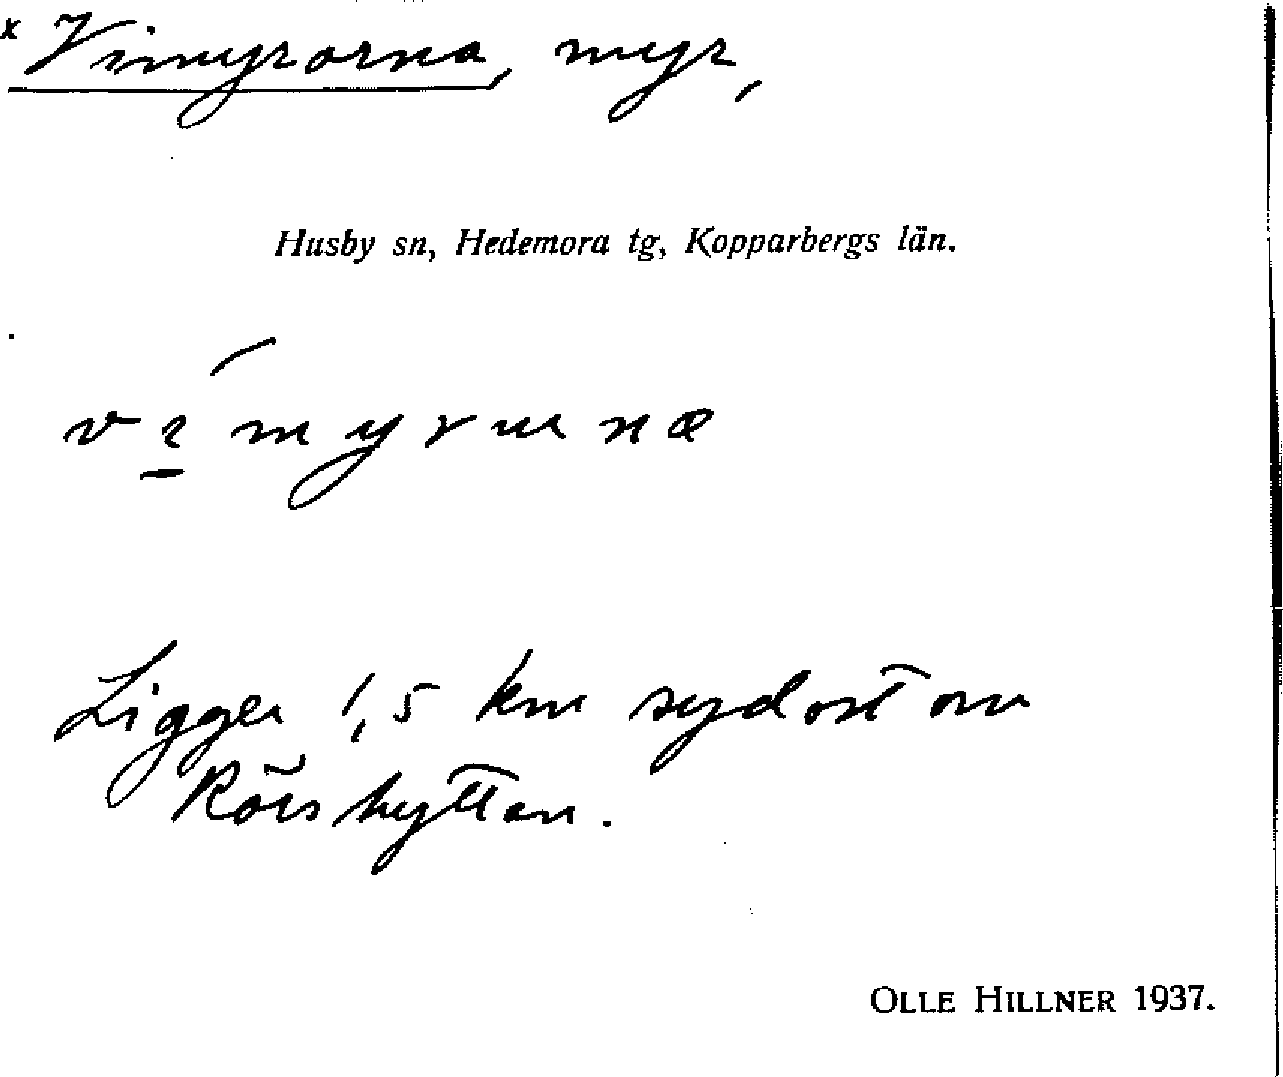 x Vimyrorna, myr,
Husby sn, Hedemora tg, Kopparbergs län.
Ligger 1,5 km sydost om
Rörshyttan.
OLLE HILLNER 1937.